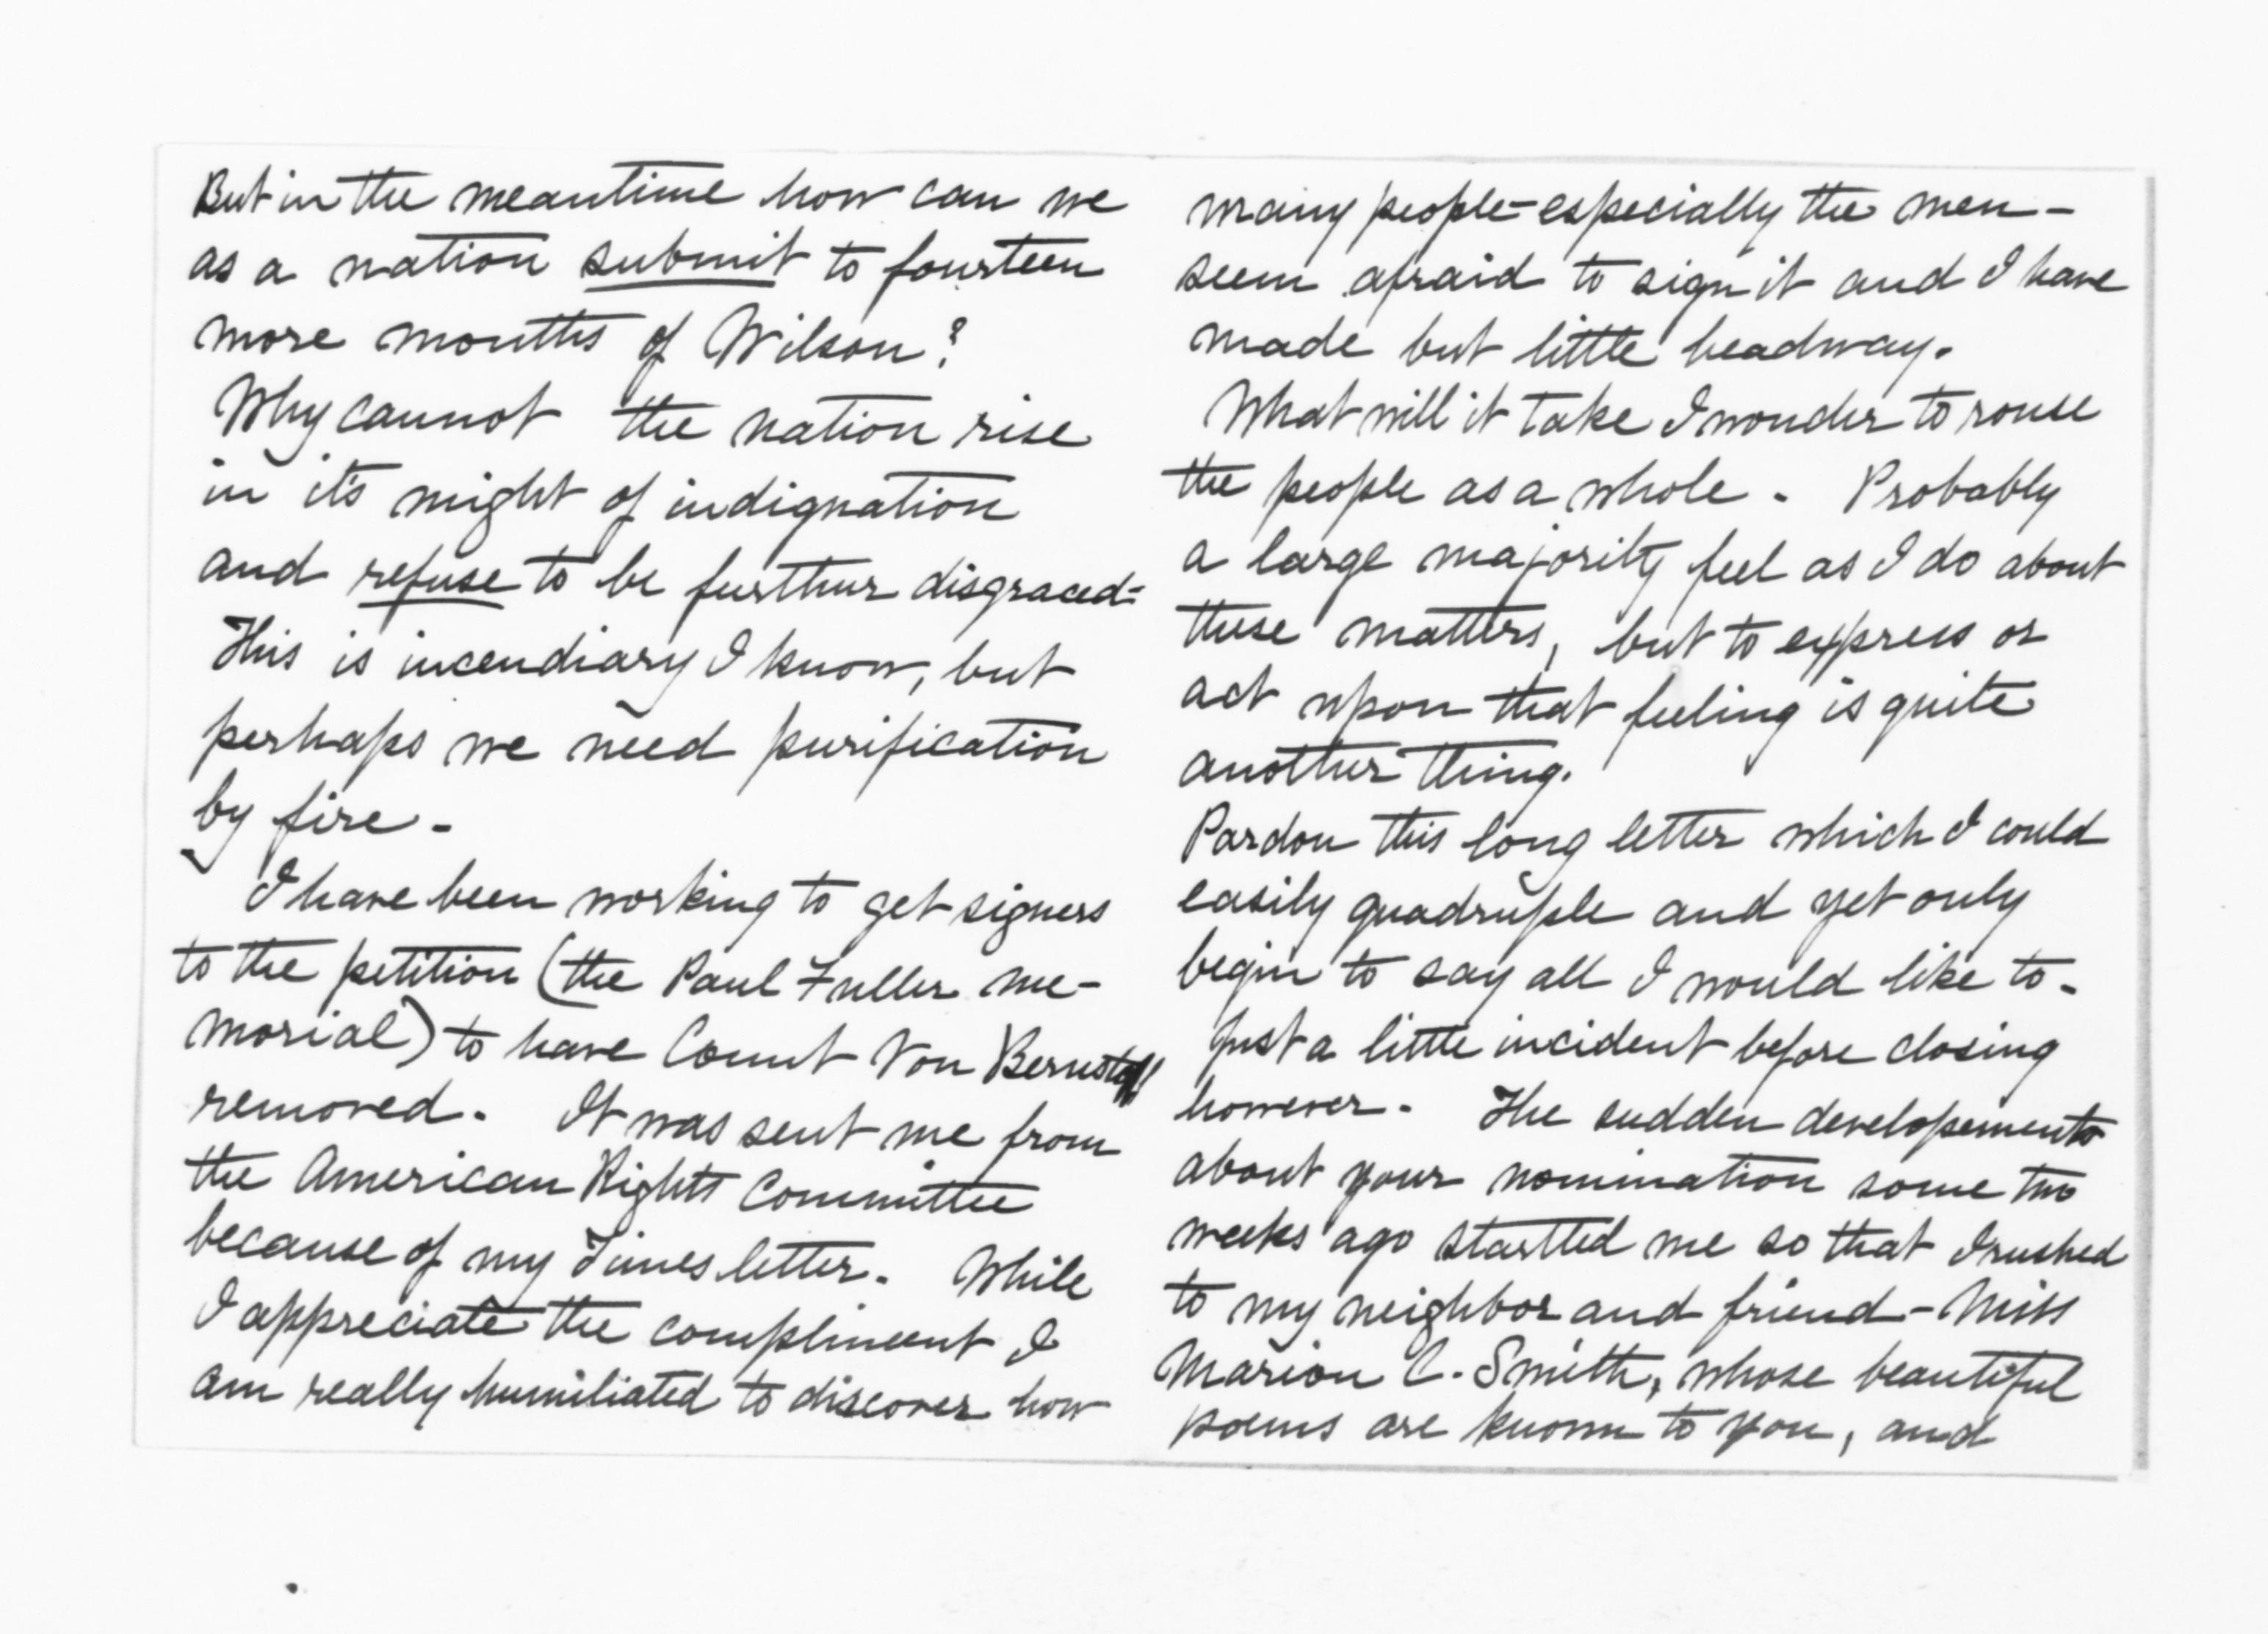 But in the meantime how can we
as a nation submit to fourteen
more months of Wilson?
Why cannot the nation rise
in it's might of indignation
and refuse to be further disgraced-
This is incendiary I know, but
perhaps we need purification
by fire-
I have been working to get signers
to the petition (the Paul Fuller me-
morial) to have Count Von Bernstoff
removed. It was sent me from
the American Rights Committee
because of my Times letter. While
I appreciate the compliment I
am really humiliated to discover how
many people-especially the men-
seem afraid to sign it and I have
made but little headway.
What will it take I wonder to rouse
the people as a whole. Probably
a large majority feel as I do about
these matters, but to express or
act upon that feeling is quite
another thing.
Pardon this long letter which I could
easily quadruple and yet only
begin to say all I would like to-
Just a little incident before closing
however. The sudden developements
about your nomination some two
weeks ago startled me so that I rushed
to my neighbor and friend-Miss
Marion C. Smith, whose beautiful
poems are known to you, and